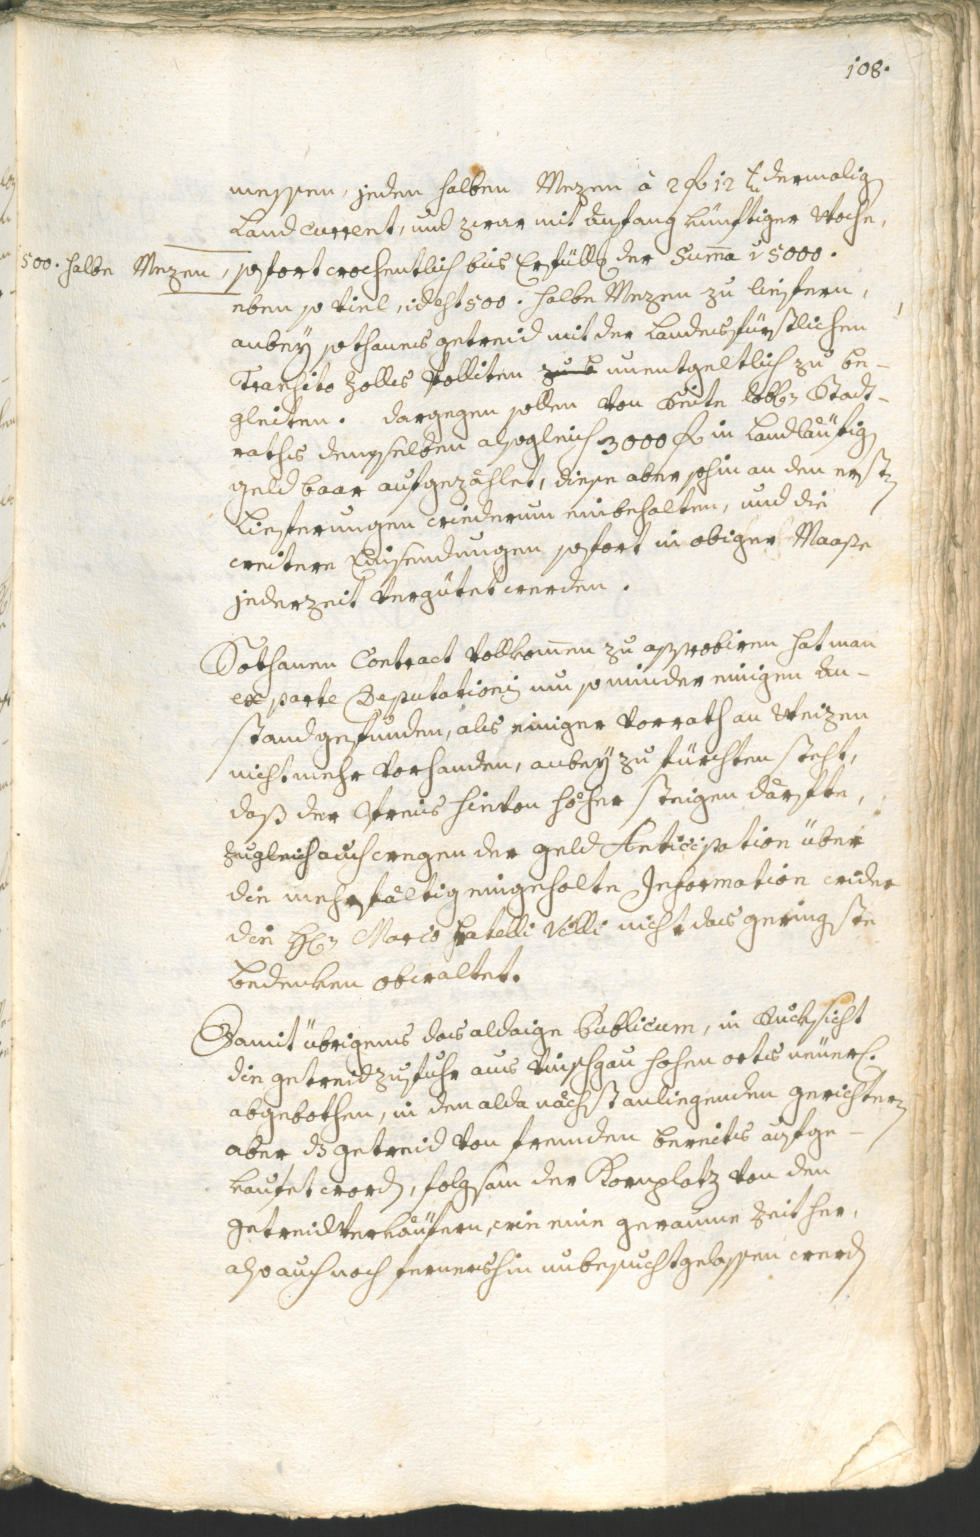 108.
messen, jeden halben Mezen à 2 f 12 x dermalig
Land Current, und zwar mit Anfang künftiger Woche,
500. halbe Mezen, sofort wochentlich bis Erfüllg der Summa v 5000.
eben so viel, id est 500. halbe Mezen zu liefern,
anbey sothanes getreid mit der Landesfürstlichen
Transito Zolls Polliten unentgeltlich zu be-
gleiten. dargegen sollen von Seite löbl. Stadt-
raths demselben alsogleich 3000 f in Landläufig
geld baar aufgezählet, diese aber sohin an den erstn
Lieferungen wiederum einbehalten, und die
weitere Einsendungen sofort in obiger Maaße
jederzeit vergütet werden.
Sothanen Contract vollkommen zu approbiren hat man
ex parte Deputationis um so minder einigen An-
stand gefunden, als einiger Vorrath an Weizen
nicht mehr vorhanden, anbey zu fürchten steht,
daß der Preis hievon höher steigen därfte,
zugleich auch wegen der geld Anticipation über
die mehrfältig eingeholte Information wider
die Hn Mario Fratelli Villi nicht das geringste
bedenken obwaltet.
Damit übrigens das aldaige Publicum, in Rucksicht
die getreidzufuhr aus Vinschgau hohen orts neuerl.
abgebothen, in den alda nächst anliegenden gerichtern
aber ds getreid von fremden bereits aufge-
kaufet word, folgsam der Kornplatz von den
getreidverkäufern, wie eine geraume Zeit her,
also auch noch fernershin unbesucht gelassen werd